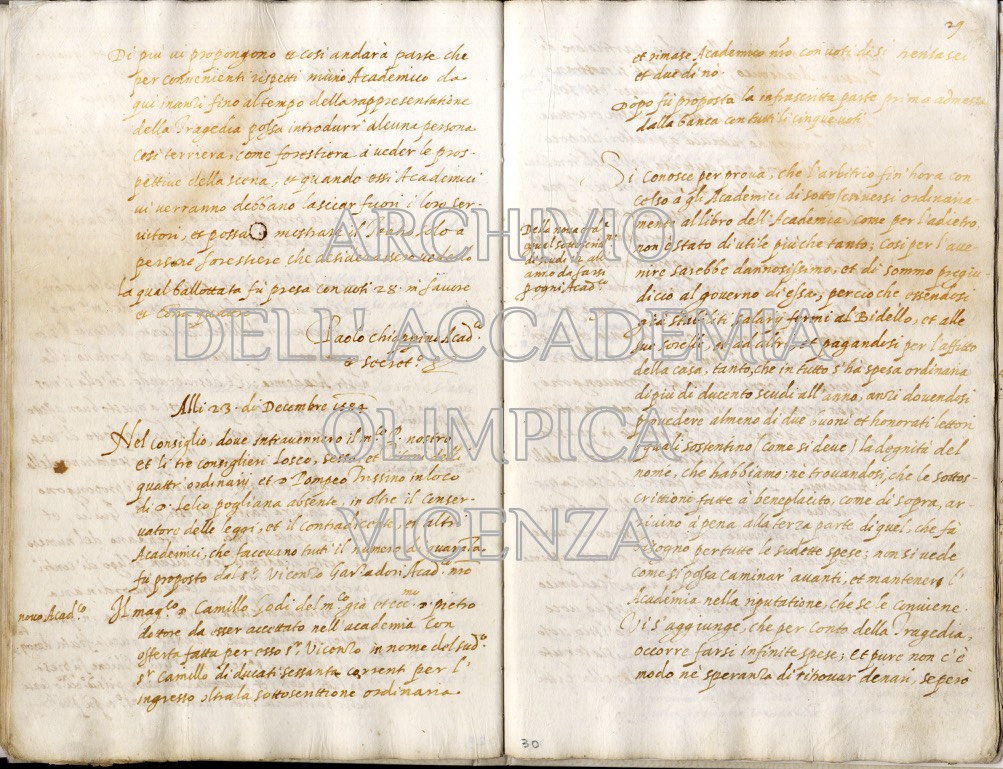 Di più vi propongono et cosi andarà parte che
per convenienti rispetti niuno Academico da
qui inanzi fino al tempo della rappresentatione
della Tragedia possa introdurr' alcuna persona
cosi terriera, come forestiera à veder le pros-
pettive della scena, et quando essi Academici
vi verranno debbano lasciar fuori i loro ser-
vitori, et possa mostrare il Teatro solo a
persone forestiere che desiderassero vederlo
la qual ballottata fù presa con voti 25. in favore
et
Paolo Chiappini Acad.co
e secret.o
Alli 23. di Decembre 1584
Nel consiglio, dove intravennero il nostro
et li tre consiglieri Losco, Sesso, et
quattr'ordinarij, et Pompeo Trissino in loco
di Lelio pogliana absente, in oltre il Conser-
vatore delle leggi, et il contradicente, et altri
Academici, che facevano tutti il numero di Quaranta
fù proposto dal s.r Vicenzo Garzadori Acad.
novo Acad.co
Il mag.co Camillo Godi del m.co già et ecc.mo pietro
dottore da esser accettato nell'academia con
offerta fatta per esso s.r Vicenzo in nome del sud.o
s.r Camillo di ducati sessanta correnti per l'
ingresso oltra la sottoscrittione ordinaria.
29
et rimase Academico con voti di si trentasei
et due di nò.
Dopo fù proposta la infrascritta parte prima admessa
dalla banca con tutti li cinque voti
Si conosce per prova, che l'arbitrio fin'hora con
cesso à gli Academici di sottoscriversi ordinaria-
mente al libro dell'Academia, come per l'adietro
non è stato di utile più che tanto; cosi per l'ave-
nire sarebbe dannosissimo, et di sommo pregiu-
dicio al governo di essa; percioche essendosi
già stabiliti salarij fermi al Bidello, et alle
et ad altri, et pagandosi per l'affitto
della casa, tanto, che in tutto s'ha spesa ordinaria
di più di ducento scudi all'anno, anzi dovendosi
provedere almeno di due buoni et honorati lettori
i quali sostentino (come si deve) la degnità del
nome, che habbiamo; ne trovandosi, che le sottos-
crittioni fatte à beneplacito, come di sopra, ar-
rivino à pena alla terza parte di quel, che fà
bisogno per tutte le sudette spese; non si vede
come si possa caminar' avanti, et mantenere l'
Academia nella riputatione, che se le conviene.
Vi s'aggiunge, che per conto della Tragedia,
occorre farsi infinite spese; et pure non c'è
modo nè speranza di ritrovar denari, se però
di scudi
anno da farsi
p ogni Acad.co
30
ARCHIVIO
DELL'ACCADEMIA
OLIMPICA
VICENZA